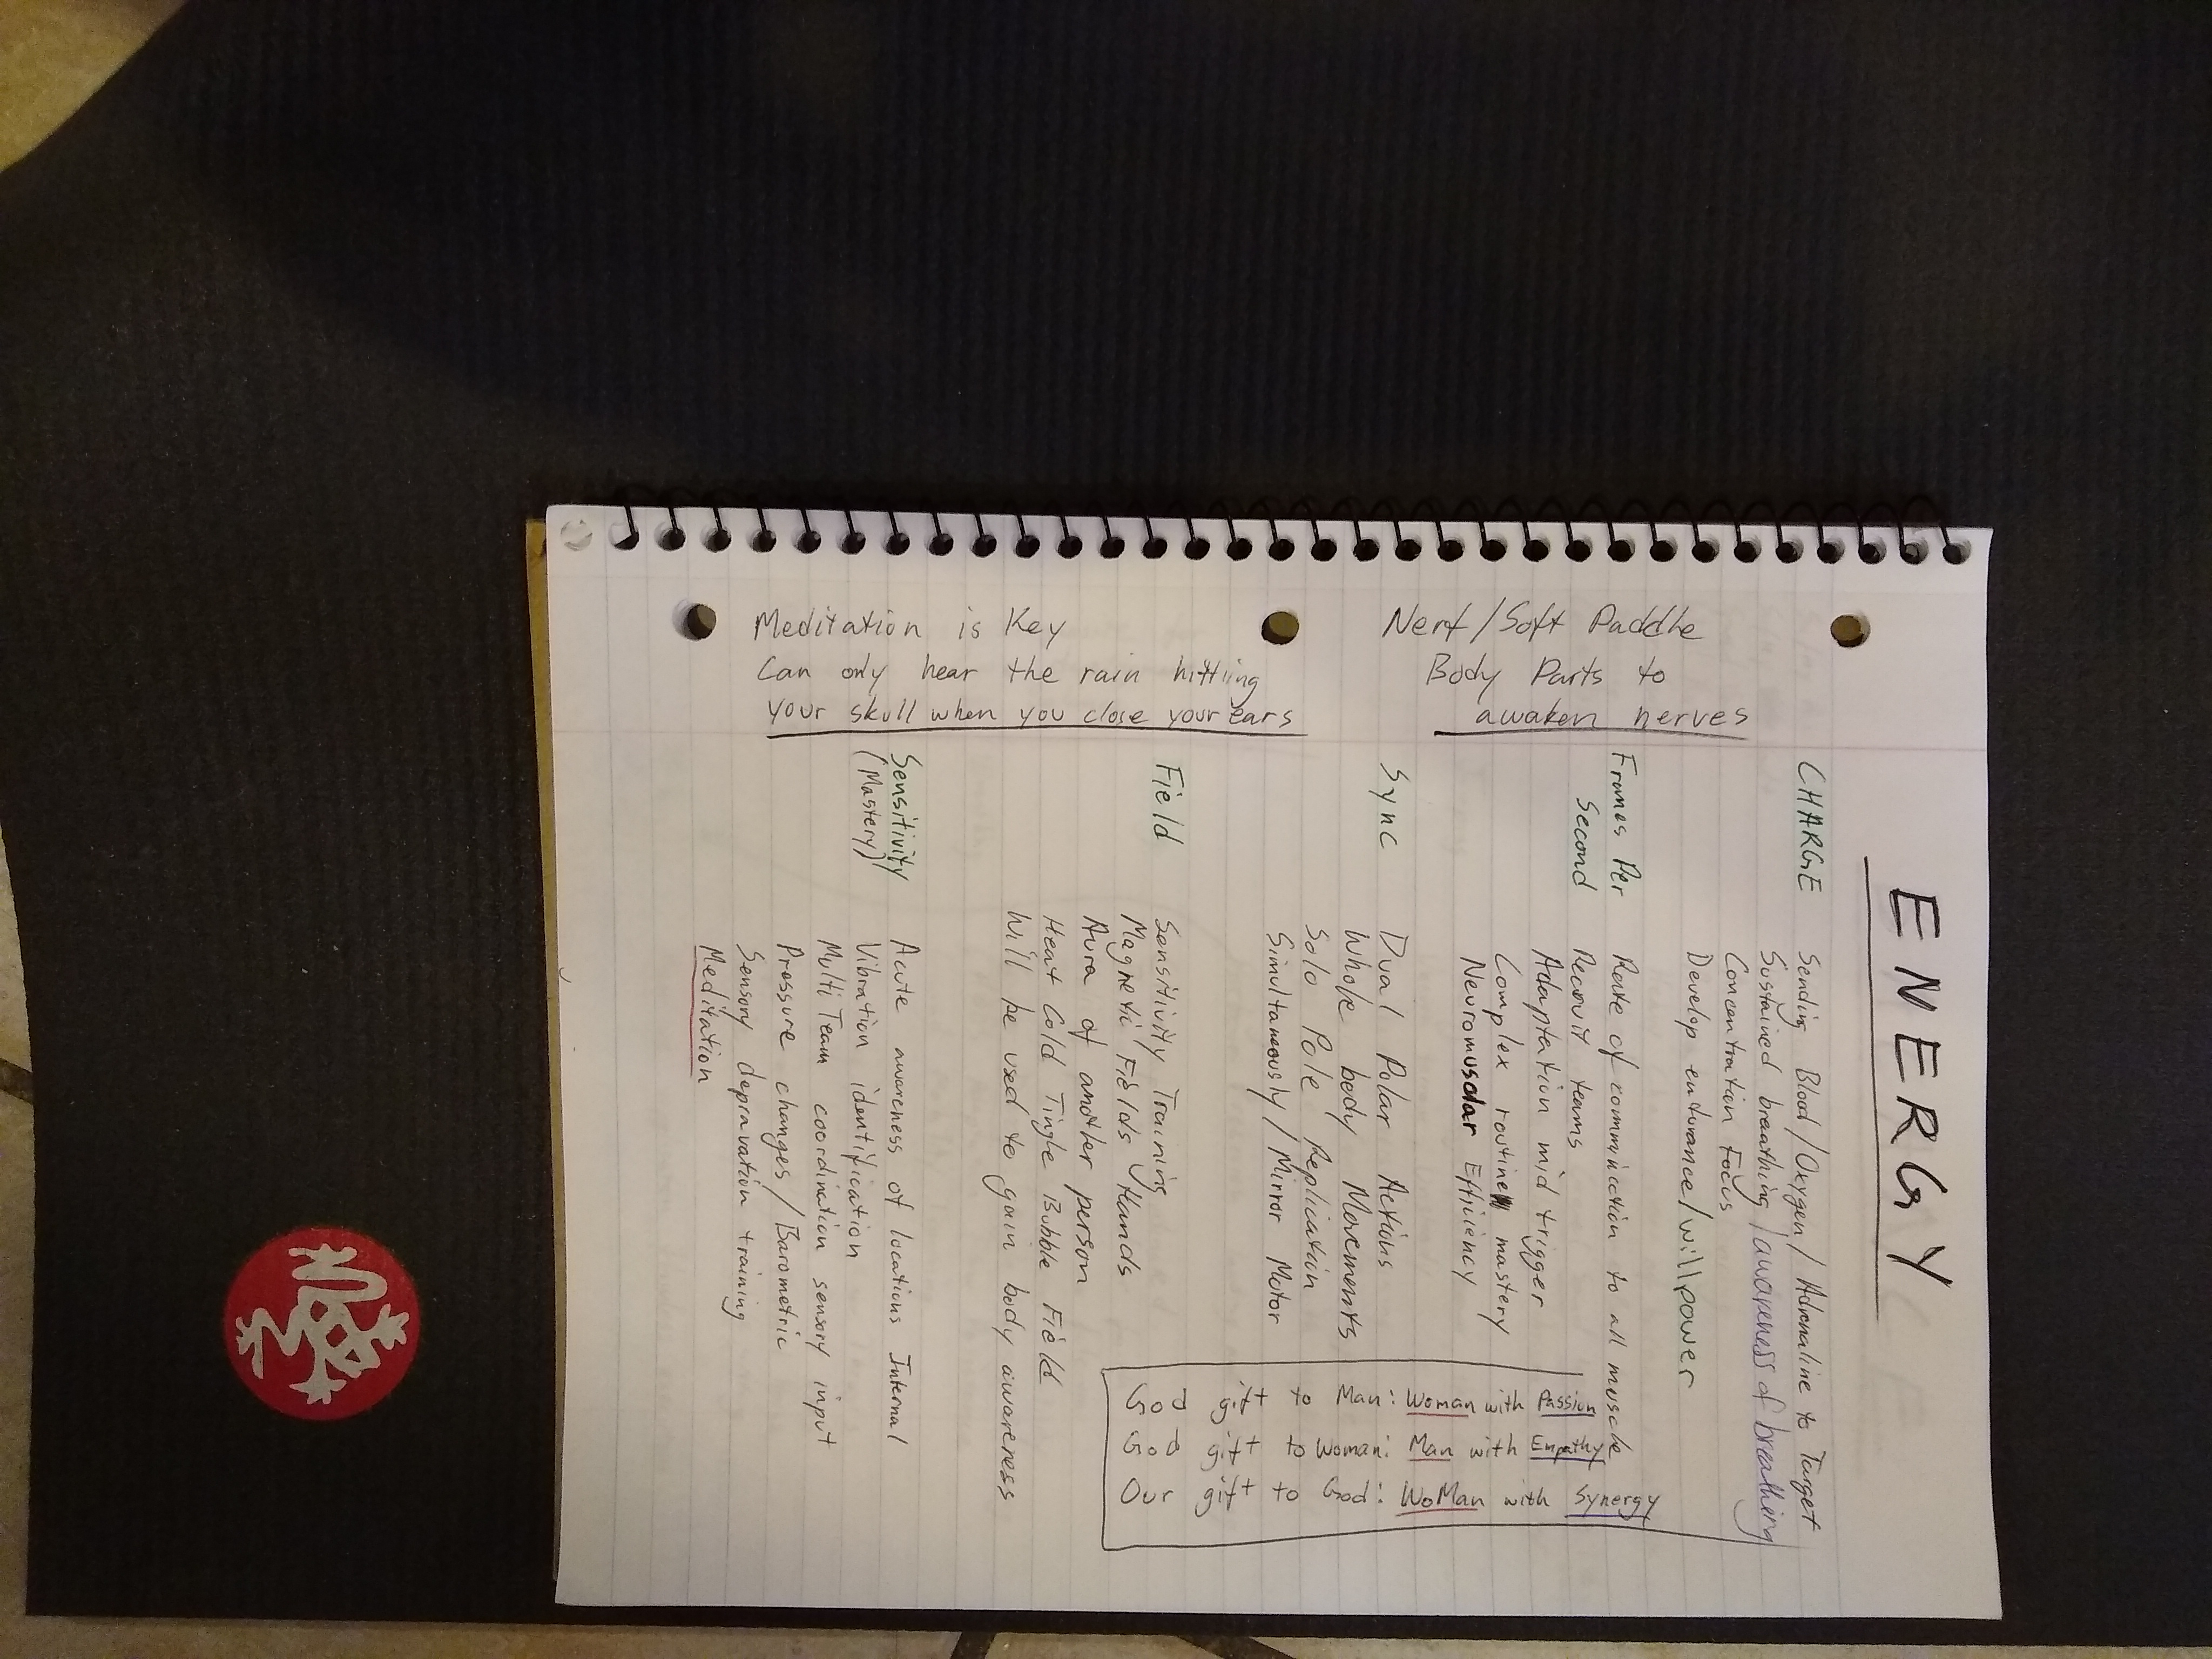 ENERGY
CHARGE
Sending Blood/Oxygen/Adrenaline to Target
Sustained breathing/awareness of breathing
Concentration Focus
Develop endurance/willpower
Frames Per
Second
Rate of communiction to all muscle
Recruit teams
Adaptation mid trigger
Complex routine mastery
Neuromuscular Efficiency
Sync
Dual Polar Actions
Whole body Movements
Solo Pole Replication
Simultaneously/Mirror Motor
Field
Sensitivity Training
Magnetic Fields Hands
Aura of another person
Heat Cold Tingle Bubble Field
Will be used to gain body awareness
Sensitivity
(Mastery)
Acute awareness of locations Internal
Vibration identification
Multi Team coordination sensory input
Pressure changes/Barometric
Sensory depravation training
Meditation
Meditation is Key
Can only hear the rain hittiing
your skull when you close your ears
Nerf/Soft Paddle
Body Parts to
awaken nerves
God gift to Man: Woman with Passion
God gift to Woman: Man with Empathy
Our gift to God: WoMan with Synergy